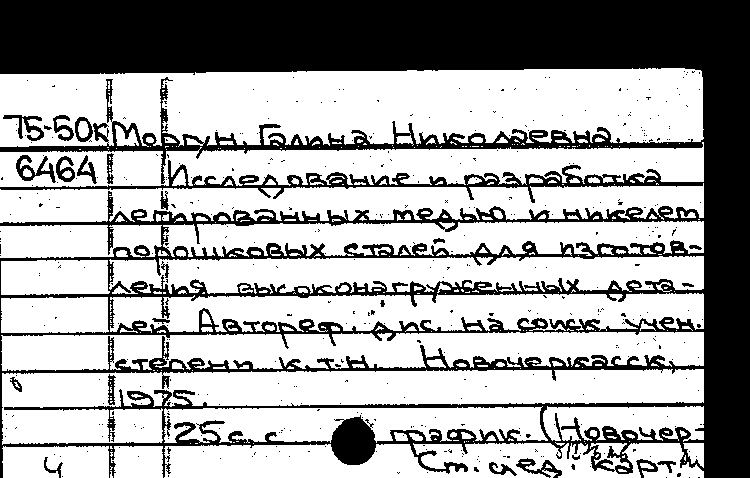 75-50к Моргун, Галина Николаевна.
6464 Исследование и разработка
легированных медью и никелем
порошковых сталей для изготов-
ления высоконагруженных дета-
лей Автореф. дис. на соиск. учен.
степени к.т.н. Новочеркасск,
1975.
25 с. с график. (Новочер-
Ч См. след. карт.